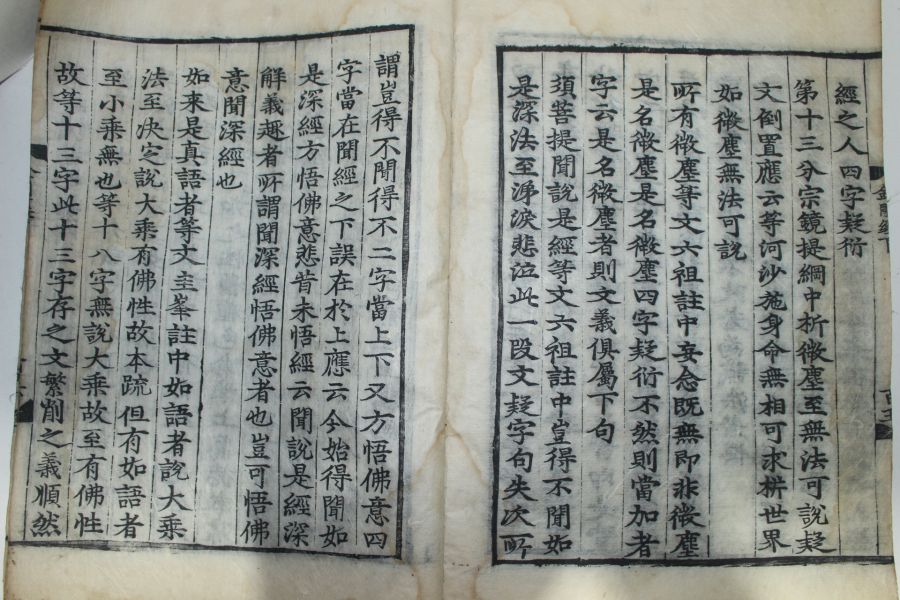 經之人四字疑衍
第十三分宗鏡提綱中析微塵至無法可說疑
文倒置應云等河沙施身命無相可求拼世界
如微塵無法可說
所有微塵等文六祖註中妄念既無即非微塵
是名微塵是名微塵四字疑衍不然則當加者
字云是名微塵者則文義俱屬下句
須菩提聞說是經等文六祖註中豈得不聞如
是深法至涕淚悲泣此一段文疑字句失次所
謂豈得不聞得不二字當上下又方悟佛意四
字當在聞經之下誤在於上應云今始得聞如
是深經方悟佛意悲昔未悟經云聞說是經深
解義趣者所謂聞深經悟佛意者也豈可悟佛
意聞深經也
如來是真語者等文圭峯註中如語者說大乘
法至决定說大乘有佛性故本疏但有如語者
至小乘無也等十八字無說大乘故至有佛性
故等十三字此十三字存之文繁削之義順然